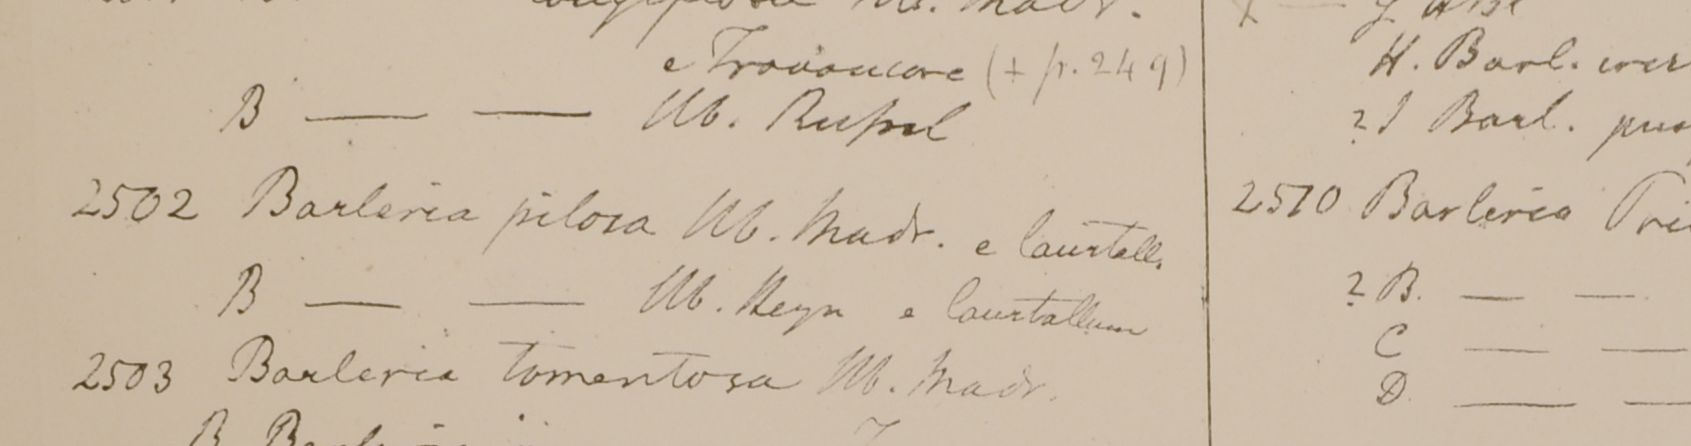 Hb. Madr.
e Travancore (+ p. 249)
B — — Hb. Russel
2502 Barleria pilosa Hb. Madr. e Courtall.
B — — Hb. Heyn e Courtallum
2503 Barleria tomentosa Hb. Madr.
B
H. Barl.
? I Barl.
2510 Barleria Pri
? B. — —
C — —
D. — —